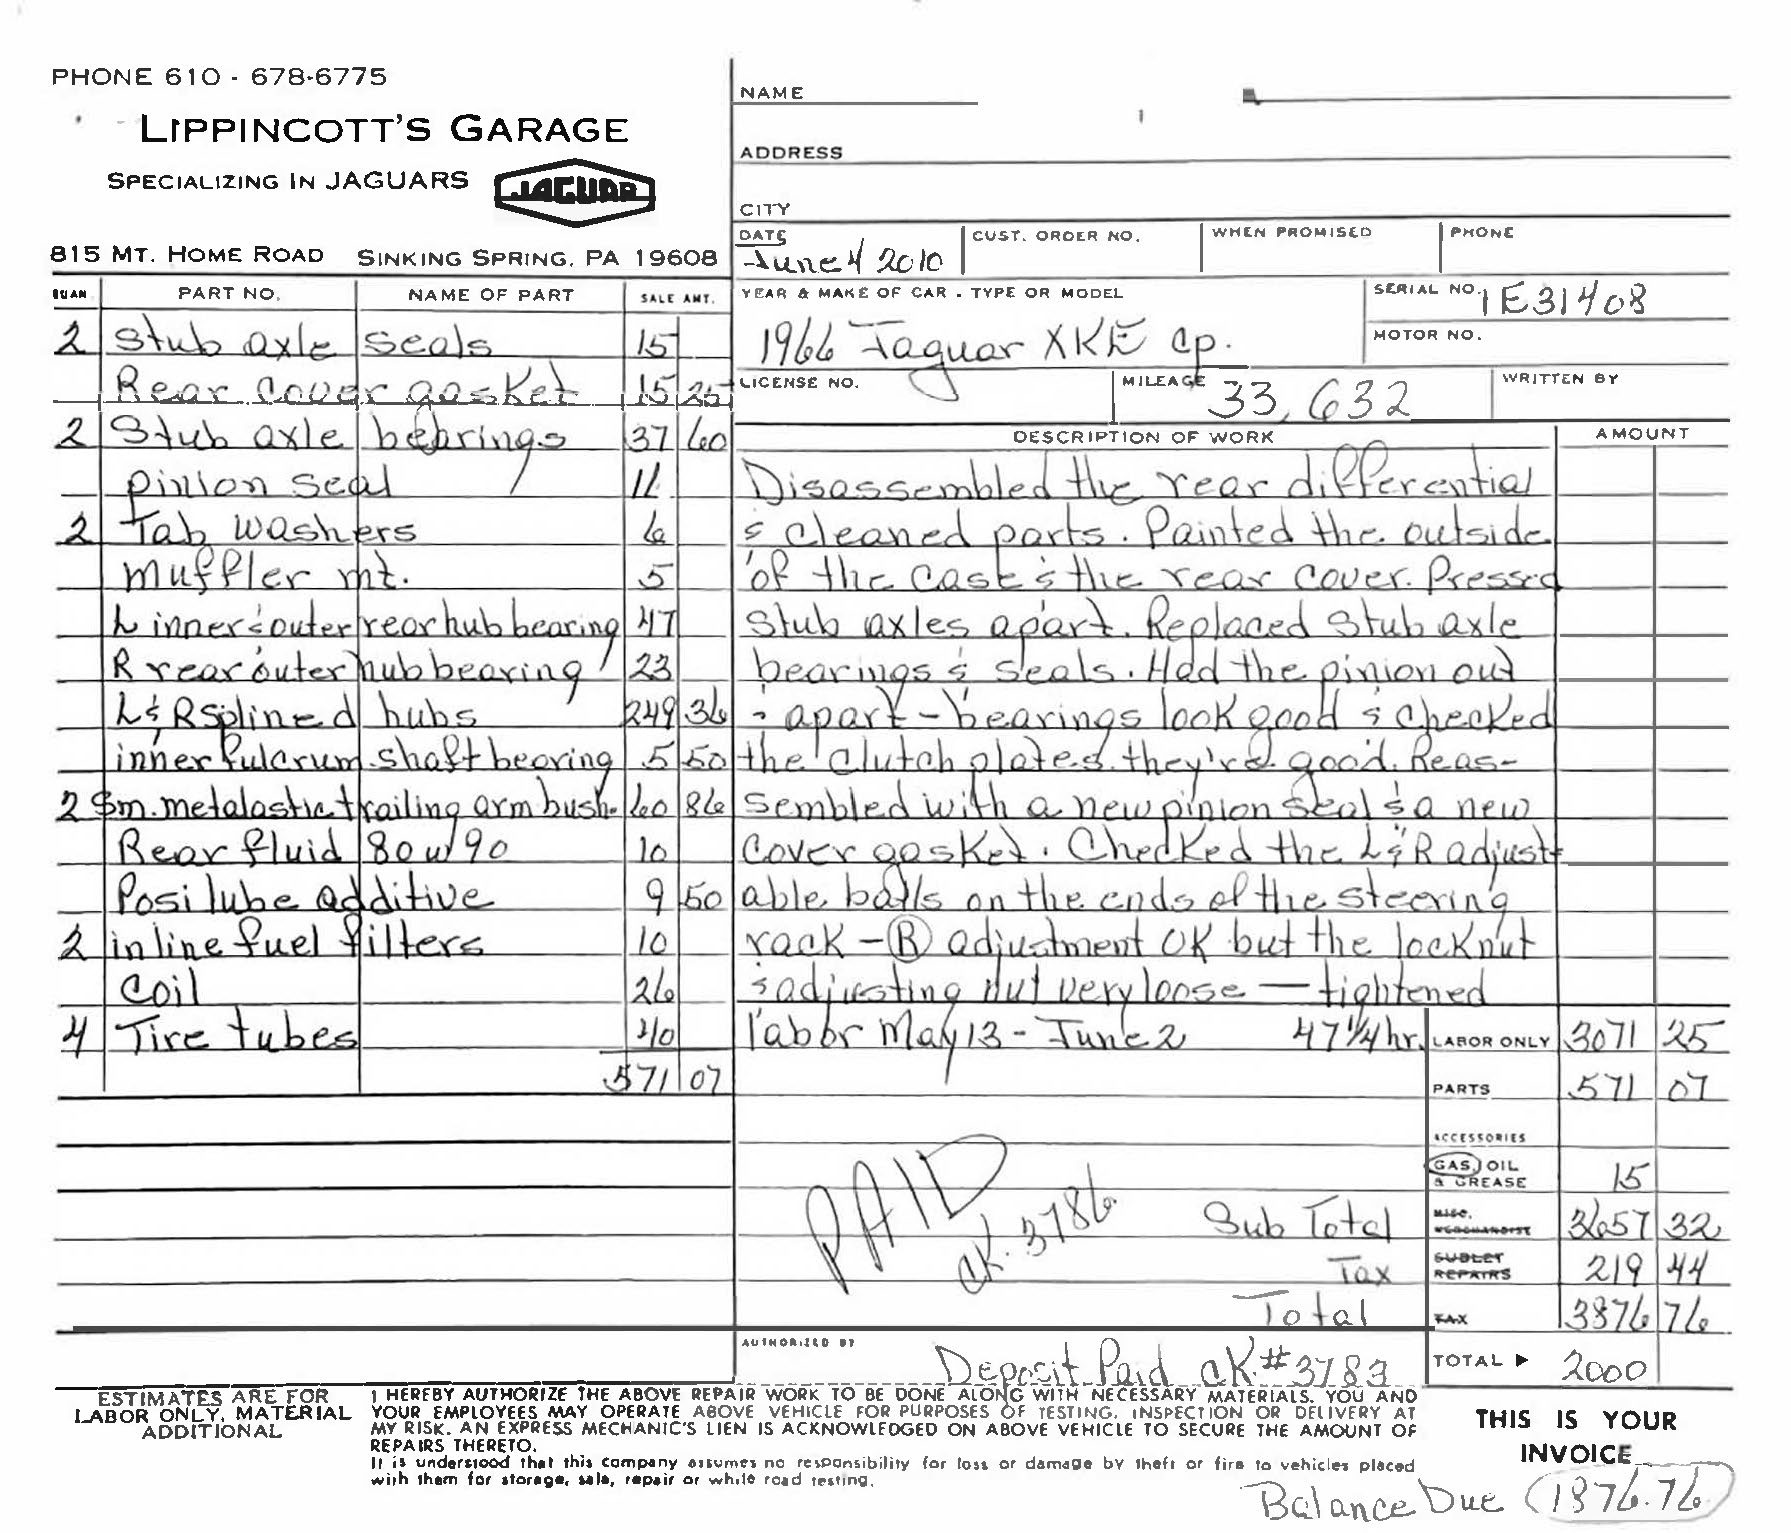 PHONE 610 - 678-6775
LIPPINCOTT'S GARAGE
SPECIALIZING IN JAGUARS JAGUAR
815 MT. HOME ROAD SINKING SPRING, PA 19608
NAME
ADDRESS
CITY
DATE CUST. ORDER NO. WHEN PROMISED PHONE
June 4 2010
YEAR & MAKE OF CAR - TYPE OR MODEL SERIAL NO. 1E31408
1966 Jaguar XKE cp. MOTOR NO.
LICENSE NO. MILEAGE 33,632 WRITTEN BY
QUAN. PART NO. NAME OF PART SALE AMT.
2 Stub axle seals 15
Rear cover gasket 15 25
2 Stub axle bearings 37 60
pinion seal 11
2 Tab washers 6
muffler mt. 5
L inner & outer rear hub bearing 47
R rear outer hub bearing 23
L & R splined hubs 249 36
inner fulcrum shaft bearing 5 50
2 Sm. metalastic trailing arm bush. 60 86
Rear fluid 80w90 10
Posi lube additive 9 50
2 inline fuel filters 10
Coil 26
4 Tire tubes 40
571 07
DESCRIPTION OF WORK AMOUNT
Disassembled the rear differential
& cleaned parts. Painted the outside
of the case & the rear cover. Pressed
stub axles apart. Replaced stub axle
bearings & seals. Had the pinion out
& apart - bearings look good & checked
the clutch plates. they're good. Reas-
sembled with a new pinion seal & a new
cover gasket. Checked the L & R adjust-
able balls on the ends of the steering
rack - R adjustment OK but the locknut
& adjusting nut very loose - tightened
labor May 13 - June 2 47 1/4 hr. LABOR ONLY 3071 25
PARTS 571 07
ACCESSORIES
GAS, OIL & GREASE 15
PAID
CK. 3786
Sub Total MISC. MERCHANDISE 3657 32
Tax SUBLET REPAIRS 219 44
Total TAX 3876 76
AUTHORIZED BY
Deposit Paid CK# 3783 TOTAL ▶ 2000
ESTIMATES ARE FOR
LABOR ONLY, MATERIAL
ADDITIONAL
I HEREBY AUTHORIZE THE ABOVE REPAIR WORK TO BE DONE ALONG WITH NECESSARY MATERIALS. YOU AND
YOUR EMPLOYEES MAY OPERATE ABOVE VEHICLE FOR PURPOSES OF TESTING, INSPECTION OR DELIVERY AT
MY RISK. AN EXPRESS MECHANIC'S LIEN IS ACKNOWLEDGED ON ABOVE VEHICLE TO SECURE THE AMOUNT OF
REPAIRS THERETO.
It is understood that this company assumes no responsibility for loss or damage by theft or fire to vehicles placed
with them for storage, sale, repair or while road testing.
THIS IS YOUR
INVOICE
Balance Due 1876.76